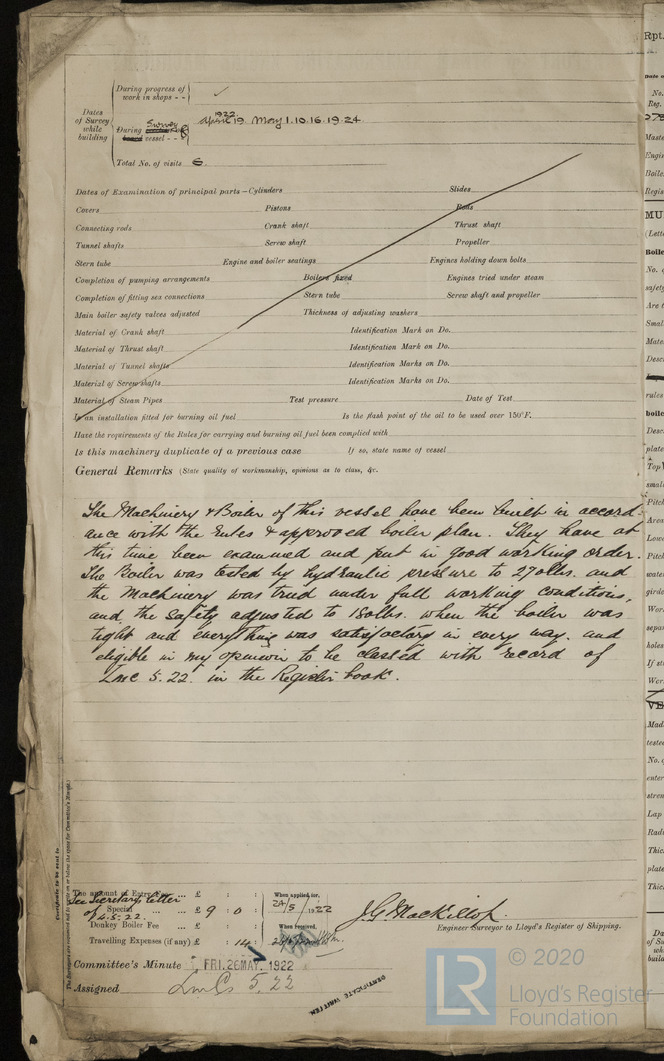 During progress of
work in shops - -
Dates
of Survey
while
building
Survey
During
board vessel - -
1922.
April 19 May 1.10.16.19.24.
Total No. of visits 6.
Dates of Examination of principal parts—Cylinders Slides
Covers Pistons Rods
Connecting rods Crank shaft Thrust shaft
Tunnel shafts Screw shaft Propeller
Stern tube Engine and boiler seatings Engines holding down bolts
Completion of pumping arrangements Boilers fixed Engines tried under steam
Completion of fitting sea connections Stern tube Screw shaft and propeller
Main boiler safety valves adjusted Thickness of adjusting washers
Material of Crank shaft Identification Mark on Do.
Material of Thrust shaft Identification Mark on Do.
Material of Tunnel shafts Identification Marks on Do.
Material of Screw shafts Identification Marks on Do.
Material of Steam Pipes Test pressure Date of Test
Is an installation fitted for burning oil fuel Is the flash point of the oil to be used over 150°F.
Have the requirements of the Rules for carrying and burning oil fuel been complied with
Is this machinery duplicate of a previous case If so, state name of vessel
General Remarks (State quality of workmanship, opinions as to class, &c.
The Machinery & Boiler of this vessel have been built in accord-
ance with the Rules & approved boiler plan. They have at
this time been examined and put in good working order.
The Boiler was tested by hydraulic pressure to 270lbs. and
the Machinery was tried under full working conditions,
and, the Safety adjusted to 180lbs. when the boiler was
tight and everything was satisfactory in every way. and
eligible in my opinion to be classed with record of
LMC 5.22. in the Register book.
The amount of Entry Fee ... £ : : When applied for.
See Secretary's letter
of 4.5.22.
Special ... ... £ 9 : 0 : 24/5/1922
Donkey Boiler Fee ... £ : : When received.
Travelling Expenses (if any) £ : 14 :
J.G. Mackillop.
Engineer Surveyor to Lloyd's Register of Shipping.
Committee's Minute FRI. 26 MAY. 1922
Assigned LMC 5.22
CERTIFICATE WRITTEN
© 2020
LR
Lloyd's Register
Foundation